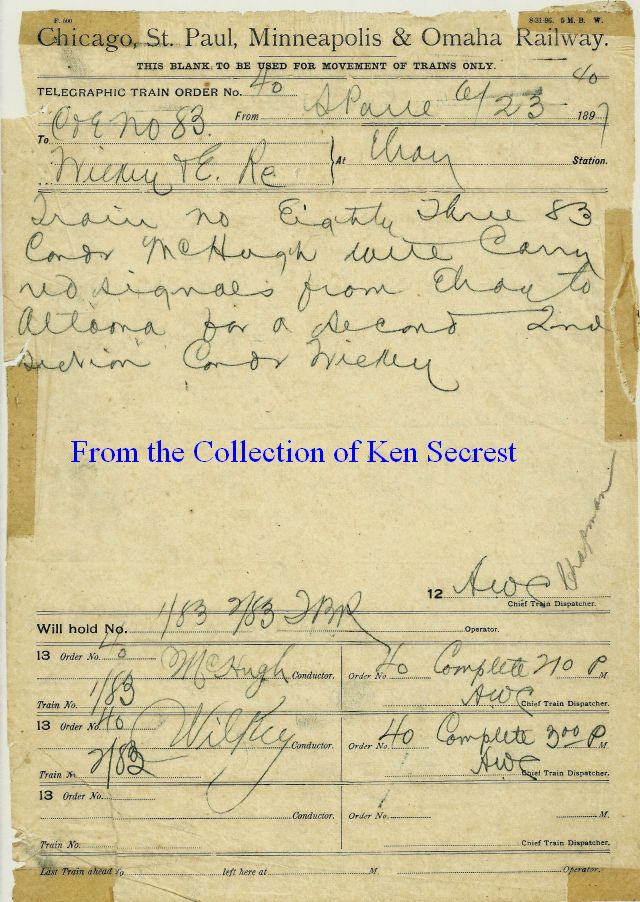 F. 500
8-31-96. 5 M. B. W.
Chicago, St. Paul, Minneapolis & Omaha Railway.
THIS BLANK TO BE USED FOR MOVEMENT OF TRAINS ONLY.
TELEGRAPHIC TRAIN ORDER No. 40
40
From St Paul 6/23 1897
To C&E No 83
Wilkey & E. Re } At Elroy Station.
Train no Eighty Three 83
Condr McHugh will Carry
red signals from Elroy to
Altoona for a second 2nd
section Condr Wilkey
From the Collection of Ken Secrest
12 AWC Chapman
Chief Train Dispatcher.
Will hold No. 1/83 2/83 Operator.
13 Order No. 40 McHugh Conductor. Order No. 40 Complete 210 P M.
Train No. 1/83 AWC Chief Train Dispatcher.
13 Order No. 40 Wilkey Conductor. Order No. 40 Complete 300 P M.
Train No. 2/83 AWC Chief Train Dispatcher.
13 Order No. Conductor. Order No. M.
Train No. Chief Train Dispatcher.
Last Train ahead to left here at M. Operator.